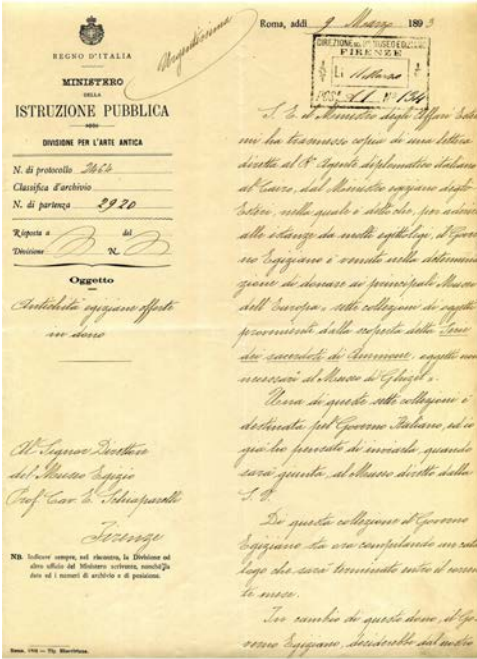 Urgentissima
REGNO D'ITALIA
MINISTERO
DELLA
ISTRUZIONE PUBBLICA
DIVISIONE PER L'ARTE ANTICA
N. di protocollo 2464
Classifica d'archivio
N. di partenza 2920
Risposta a del
Divisione N.
Oggetto
Antichità egiziane offerte
in dono
Al Signor Direttore
del Museo Egizio
Prof. Cav. E. Schiaparelli
Firenze
NB. Indicare sempre, nel riscontro, la Divisione od
altro ufficio del Ministero scrivente, nonchè la
data ed i numeri di archivio e di posizione.
Roma, addì 9 Marzo 1893
MUSEO EGIZIO
FIRENZE
Li 11 Marzo
POS. A1 N° 134
S. E. il Ministro degli Affari Esteri
mi ha trasmesso copia di una lettera
diretta al R° Agente diplomatico italiano
al Cairo, dal Ministro egiziano degli
Esteri, nella quale è detto che, per aderire
alle istanze da molti egittologi, il Gover
no Egiziano è venuto nella determina
zione di donare ai principali Musei
dell'Europa, sette collezioni di oggetti
provenienti dalla scoperta della
dei sacerdoti di Ammone, oggetti non
necessari al Museo di Ghizeh".
Una di queste sette collezioni è
destinata pel Governo Italiano, ed io
già ho pensato di inviarla, quando
sarà giunta, al Museo diretto dalla
S. V.
Di questa collezione il Governo
Egiziano sta ora compilando un cata
logo che sarà terminato entro il corren
te mese.
In cambio di questo dono, il Go
verno Egiziano, desiderebbe dal nostro